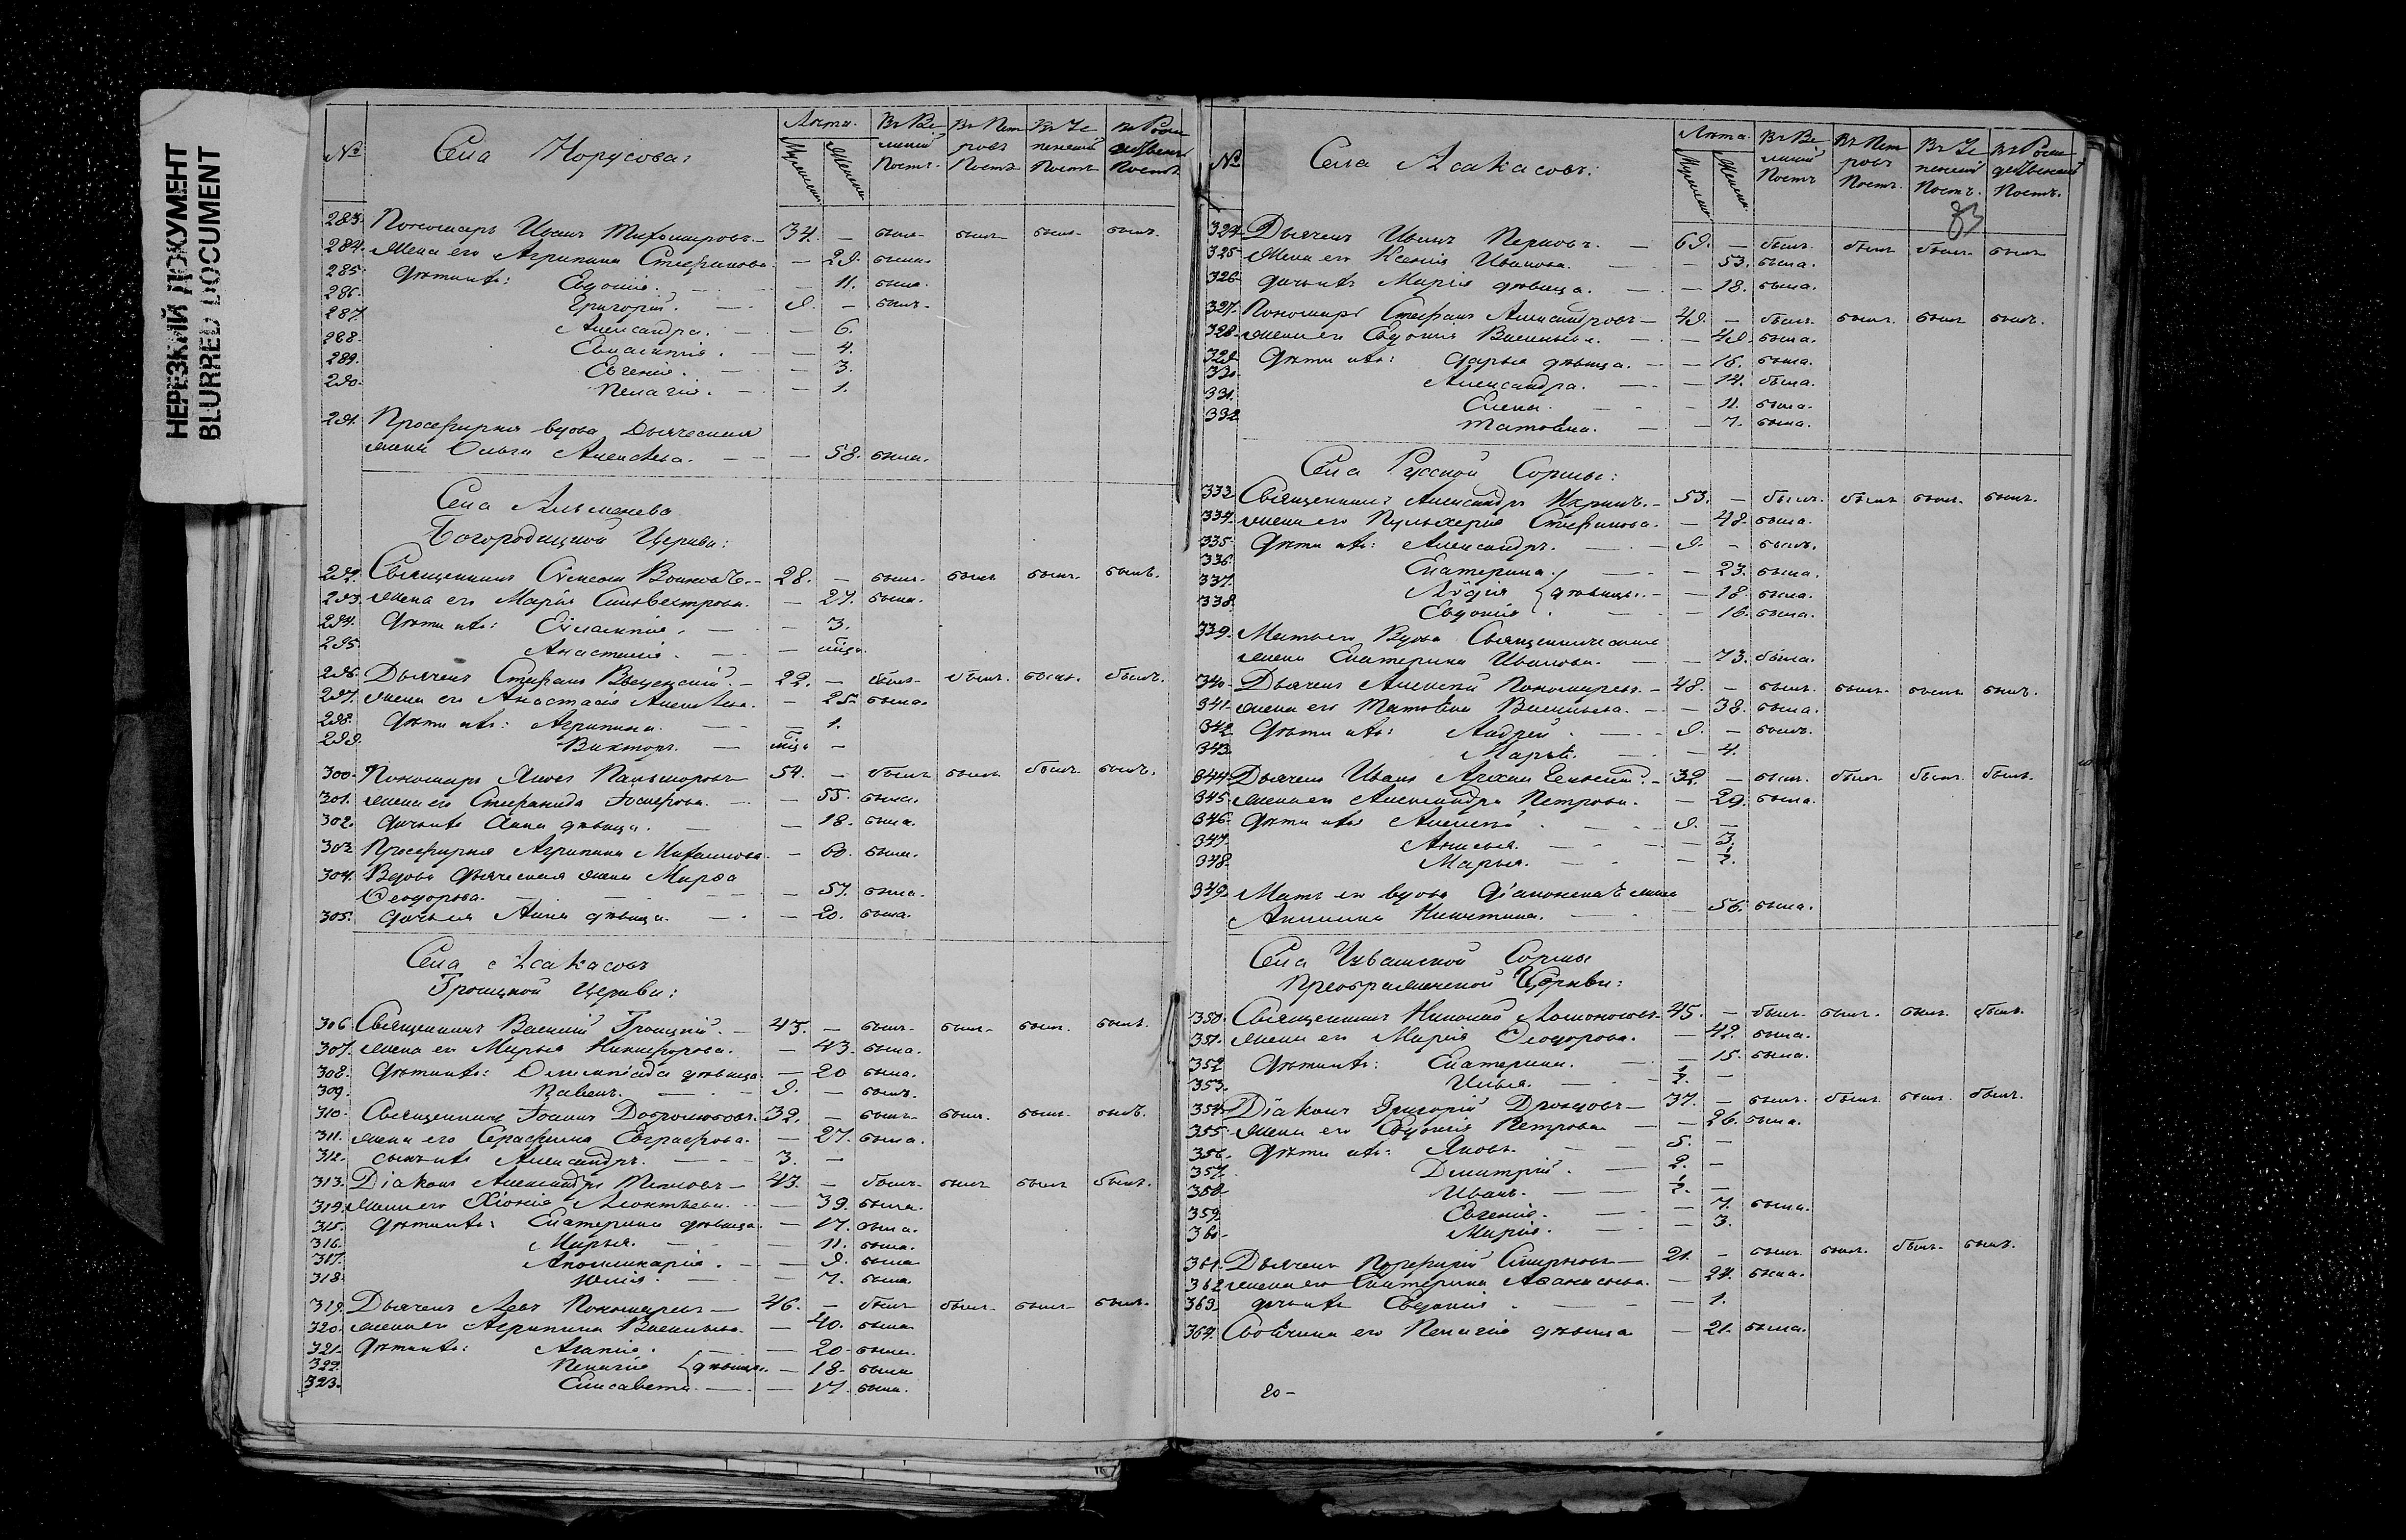 НЕРЕЗКИЙ ДОКУМЕНТ
BLURRED DOCUMENT
№ Села Норусова: Лѣта. Въ Великій Постъ. Въ Петровъ Постъ Въ Успенскій Постъ Въ Рождественскій Постъ
Мужеска Женска
283. Пономарь Иванъ Тихомировъ — 34. — былъ былъ былъ былъ.
284. Жена его Агрипина Стефанова — 29. была.
285. Дѣти ихъ: Евдокія. — 11. была.
286. Григорій. 9. — былъ.
287. Александра. — 6.
288. Евлампія. — 4.
289. Евгенія. — 3.
290. Пелагія. — 1.
291. Просфирня вдова Дьяческая
жена Ольга Алексѣева. — 58. была.
Села Альменева
Богородицкой Церкви:
292. Священникъ Симеонъ — 28. — былъ былъ былъ былъ.
293. Жена его Марія Сильвестрова. — 27. была.
294. Дѣти ихъ: Евлампія. — 3.
295. Анастасія. —
296. Дьячекъ Стефанъ — 22. — былъ былъ. былъ. былъ.
297. Жена его Анастасія Алексѣева. — 25 была.
298. Дѣти ихъ: Агрипина. — 1.
299. Викторъ. — —
300. Пономарь Яковъ Пальмировъ 54. — былъ былъ былъ. былъ.
301. Жена его Стефанида — 55. была.
302. Дочь ихъ Анна дѣвица. — 18. была.
303 Просфирня Агрипина Михайлова. — 60. была.
304. Вдова дьяческая жена Марѳа
Ѳеодорова. — 57. была.
305. Дочь ея Анна дѣвица. — 20. была.
Села Асакасовъ
Троицкой Церкви:
306 Священникъ Василій Троицкій. — 45. — былъ былъ былъ. былъ.
307. Жена его Марья Никифорова. — 43. была.
308. Дѣти ихъ: Олимпіада дѣвица. — 20 была.
309. Павелъ. — 9. — былъ.
310. Священникъ Іоаннъ Добролюбовъ. 32. — былъ былъ. былъ. былъ.
311. Жена его Серафима Евграфова. — 27. была.
312. Сынъ ихъ Александръ. — 3. —
313. Діаконъ Александръ — 43. — былъ. былъ былъ былъ.
314. Жена его Хіонія Леонтьева. — 39. была.
315. Дѣти ихъ: Екатерина дѣвица. — 17. была.
316. Марья. — 11. была.
317. Аполлинарія. — 9. была
318 Юлія. — 7. была.
319. Дьячекъ Левъ Пономаревъ — 46. — былъ былъ. былъ былъ.
320. Жена его Агрипина Васильева. — 40. была
321. Дѣти ихъ: Агапія. — 20 была.
322. Пелагія дѣвицы. — 18. была
323. Елисавета. — 17. была.
№ Села Асакасовъ: Лѣта. Въ Великій Постъ Въ Петровъ Постъ. Въ Успенскій Постъ. Въ Рождественскій Постъ.
Мужеска Женска
83
324. Дьячекъ Иванъ Перновъ. — 69. — былъ. былъ былъ. былъ
325 Жена его Ксенія Иванова. — 53. была.
326. Дочь ихъ Марія дѣвица. — 18. была.
327. Пономарь Стефанъ Александровъ — 49. — былъ. былъ. былъ былъ.
328. Жена его Евдокія Васильева. — 49. была.
329 Дѣти ихъ: Дарья дѣвица. — 16. была.
330. Александра. — 14. была.
331. Елена. — 11. была.
332 Татьяна. — 7. была.
Села Русской Сормы:
333 Священникъ Александръ — 53. — былъ. былъ былъ. былъ.
334. Жена его Пульхерія Стефанова. — 48. была.
335. Дѣти ихъ: Александръ. — 9. — былъ.
336. Екатерина. — 23. была.
337. Лидія дѣвицы. — 18. была.
338. Евдокія. — 16. была.
339. Мать его Вдова Священническая
жена Екатерина Иванова. — 73. была.
340. Дьячекъ Алексѣй Пономаревъ. — 48. — былъ. былъ. былъ былъ.
341. Жена его Татьяна Васильева. — 38. была.
342 Дѣти ихъ: Андрей. — 9. — былъ.
343. Марья. — 4.
344. Дьячекъ Иванъ — 32. — былъ. былъ былъ былъ.
345 Жена его Александра Петрова. — 29. была.
346. Дѣти ихъ Алексѣй. — 9. —
347. Анисья. — 3.
348. Марья. — ½.
349. Мать его вдова Діаконская жена
Никитина. — 56. была.
Села Чувашской Сормы
Преображенской Церкви:
350. Священникъ Николай Ломоносовъ. 45. — былъ. былъ. былъ. былъ.
351. Жена его Марія Ѳеодорова. — 42. была.
352 Дѣти ихъ: Екатерина. — 15. была.
353. Илья. — ½. —
354. Діаконъ Григорій — 37. — былъ. былъ. былъ. былъ.
355. Жена его Евдокія Петрова — 26. была.
356. Дѣти ихъ: Яковъ. 5. —
357. Дмитрій. — 2. —
358. Иванъ. — ½. —
359. Евгенія. — 7. была.
360. Марія. — 3.
361. Дьячекъ Порфирій Смирновъ — 21. — былъ. былъ. былъ. былъ.
362 Жена его Екатерина Аѳанасьева. — 24. была.
363. Дочь ихъ Евдокія. — 1.
364. Своячина его Пелагія дѣвица — 21. была.
20 —